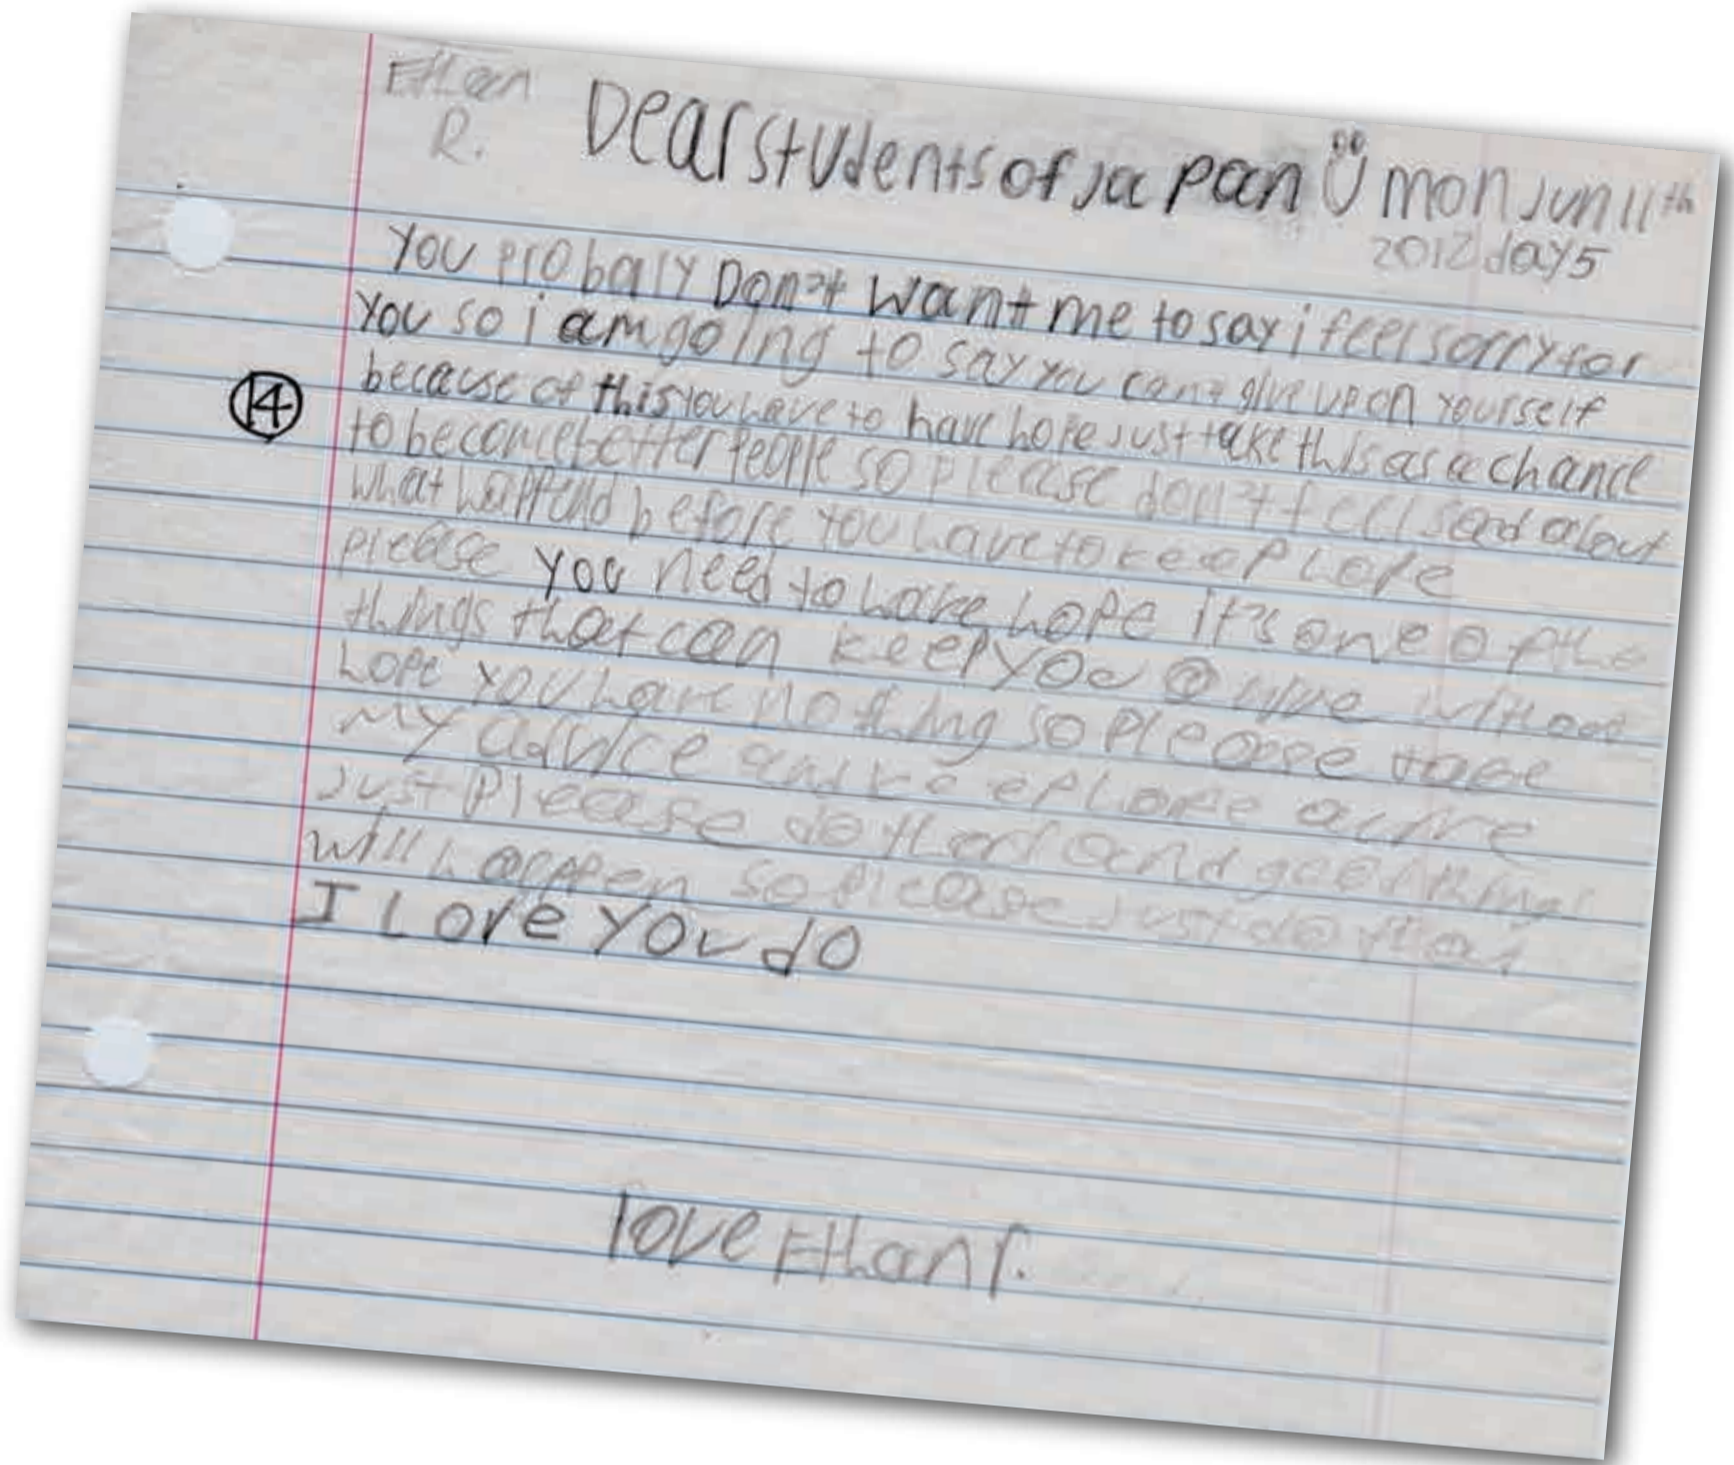 Ethan
R.
Dear students of japan mon Jun 11th
2012 day 5
You probaly Don't want me to say i feel sorry for
You so i am going to say you can't give up on yourself
14
because of this you have to have hope Just take this as a chance
to become better people so please don't feel sad about
what happend before you have to keep hope
please you need to have hope it's one of the
things that can keep you alive without
hope you have nothing so please take
my advice and keep hope active
Just please do that and good things
will happen so please Just do that
I Love you do
love Ethan r.